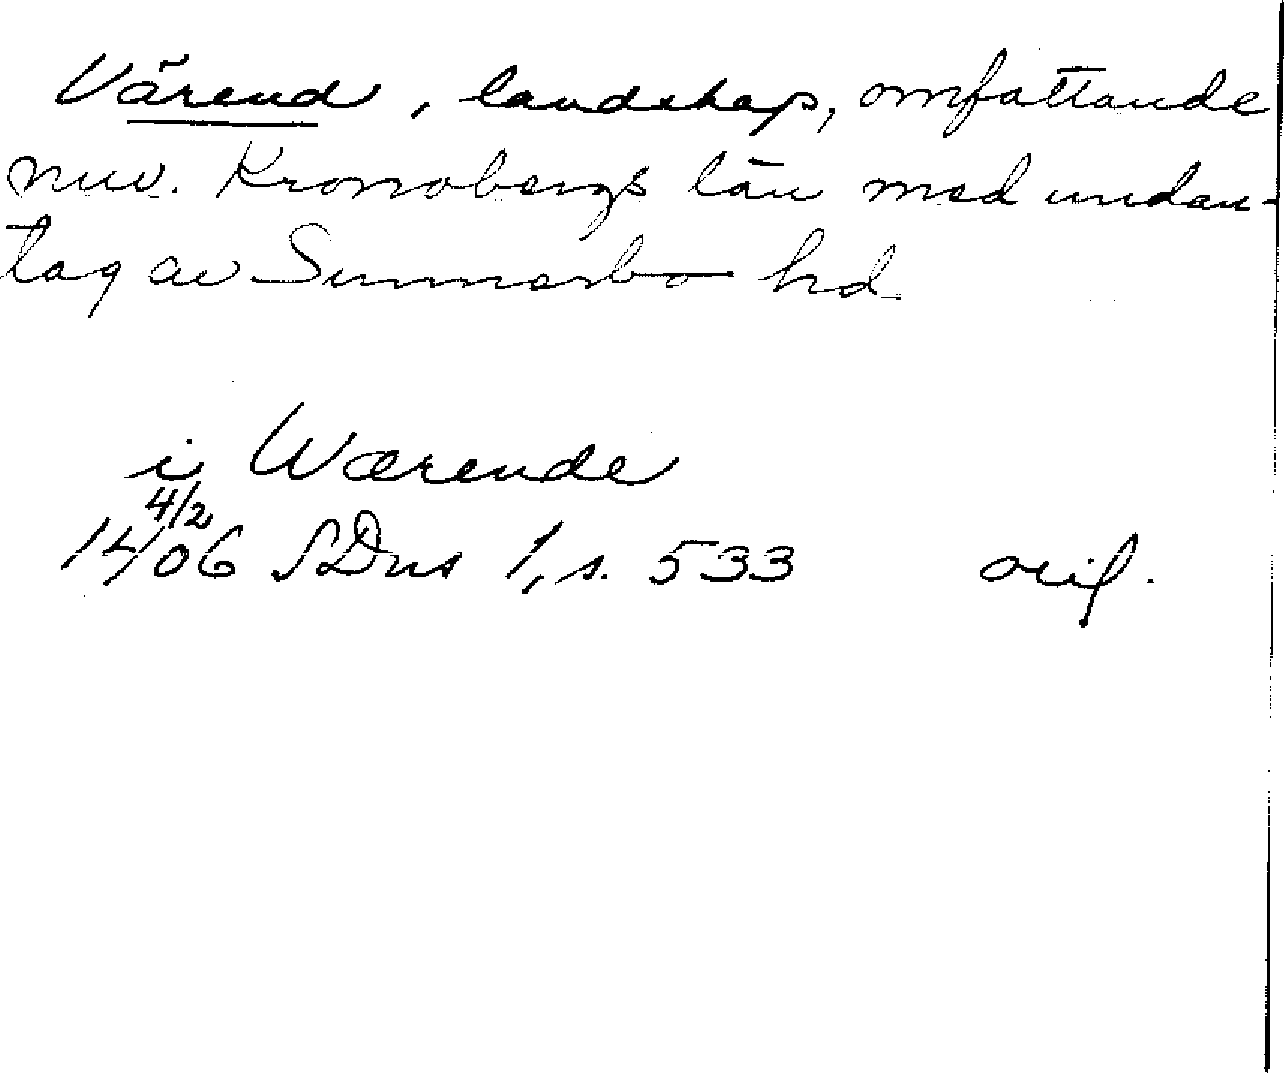 Värend, landskap, omfattande
nuv. Kronobergs län med undan-
tag av Sunnerbo hd.
i Wærende
4/2
1406 SDns 1, s. 533 orig.